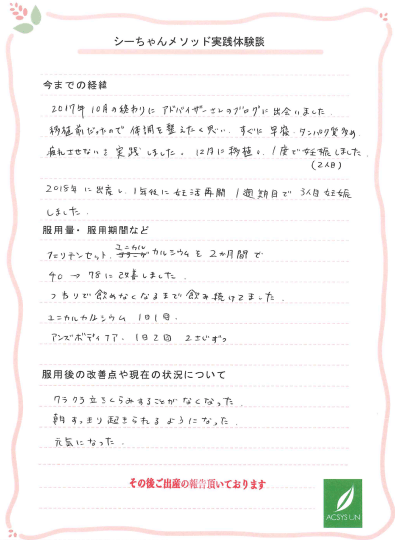 シーちゃんメソッド実践体験談
今までの経緯
2017年10月の終わりにアドバイザーさんのブログに出会いました.
移植前だったので体調を整えたく思い. すぐに早寝・タンパク質多め.
疲れさせないを実践しました。12月に移植し、1度で妊娠しました.
(2人目)
2018年に出産し、1年後に妊活再開 1週期目で3人目妊娠
しました.
服用量・服用期間など
フェリチンセット. ユニカル カルシウムを2ヵ月間で
40 → 78に改善しました.
つわりで飲めなくなるまで飲み続けてました.
ユニカルカルシウム 1日1回.
アンズボディケア. 1日2回 2さじずつ
服用後の改善点や現在の状況について
クラクラ立ちくらみすることがなくなった.
朝すっきり起きられるようになった.
元気になった.
その後ご出産の報告頂いております
ACSYSUN